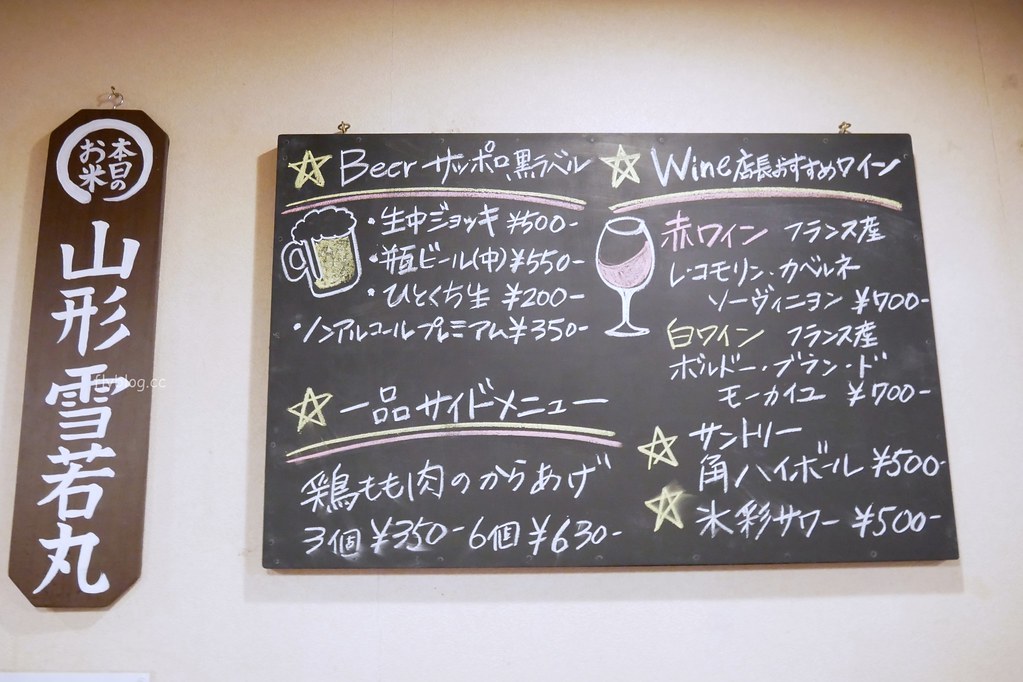 本日の
お米
山形 雪若丸
flyblog.cc
Beer サッポロ黒ラベル
・生中ジョッキ ¥500-
・瓶ビール(中)¥550-
・ひとくち生 ¥200-
・ノンアルコールプレミアム¥350-
一品サイドメニュー
鶏もも肉のからあげ
3個¥350- 6個¥630-
Wine店長おすすめワイン
赤ワイン フランス産
レ・コモリン・カベルネ
ソーヴィニヨン ¥700-
白ワイン フランス産
ボルドー・ブラン・ド
モーカイユ ¥700-
サントリー
角ハイボール ¥500-
氷彩サワー ¥500-